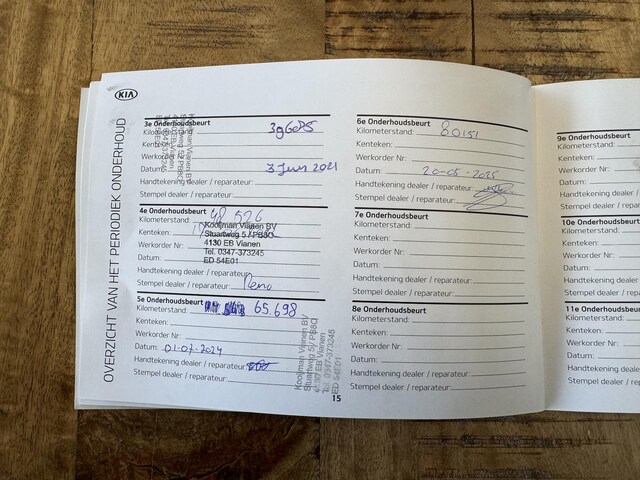 KIA
OVERZICHT VAN HET PERIODIEK ONDERHOUD
3e Onderhoudsbeurt
Kilometerstand:
Kenteken:
Werkorder Nr:
Datum: 3 Juni 2021
Handtekening dealer / reparateur:
Stempel dealer / reparateur:
Kooijman Vianen BV
4e Onderhoudsbeurt
48 526
Kenteken:
Kooijman Vianen BV
Stuartweg 5 / PB8O
4130 EB Vianen
Tel. 0347-373245
ED 54E01
Werkorder Nr:
Datum:
Handtekening dealer / reparateur:
Stempel dealer / reparateur:
5e Onderhoudsbeurt
Kilometerstand: 65.698
Kenteken:
Werkorder Nr:
Datum: 01-07-2024
Handtekening dealer / reparateur:
Stempel dealer / reparateur:
Kooijman Vianen BV
Stuartweg 5 / PB8O
4130 EB Vianen
Tel. 0347-373245
ED 54E01
15
6e Onderhoudsbeurt
Kilometerstand: 80151
Kenteken:
Werkorder Nr:
Datum: 20-05-2025
Handtekening dealer / reparateur:
Stempel dealer / reparateur:
7e Onderhoudsbeurt
Kilometerstand:
Kenteken:
Werkorder Nr:
Datum:
Handtekening dealer / reparateur:
Stempel dealer / reparateur:
8e Onderhoudsbeurt
Kilometerstand:
Kenteken:
Werkorder Nr:
Datum:
Handtekening dealer / reparateur:
Stempel dealer / reparateur:
9e Onderhoudsbeurt
Kilometerstand:
Kenteken:
Werkorder Nr:
Datum:
Handtekening dealer
Stempel dealer / repa
10e Onderhoudsbeurt
Kilometerstand:
Kenteken:
Werkorder Nr:
Datum:
Handtekening dealer /
Stempel dealer / repara
11e Onderhoudsbeurt
Kilometerstand:
Kenteken:
Werkorder Nr:
Datum:
Handtekening dealer / r
Stempel dealer / reparat